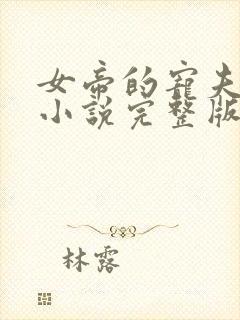 女帝的寵夫
小說完整版
林露